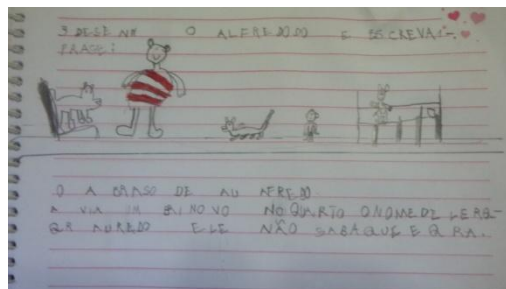 3 DESENE O ALFREDO E ESCREVA:
FRASE:
O A BRASO DE AU AFREDO
A VIA UM NOVO NO QUARTO O NOME DE LE
AUREDO ELE NÃO SABA QUE E